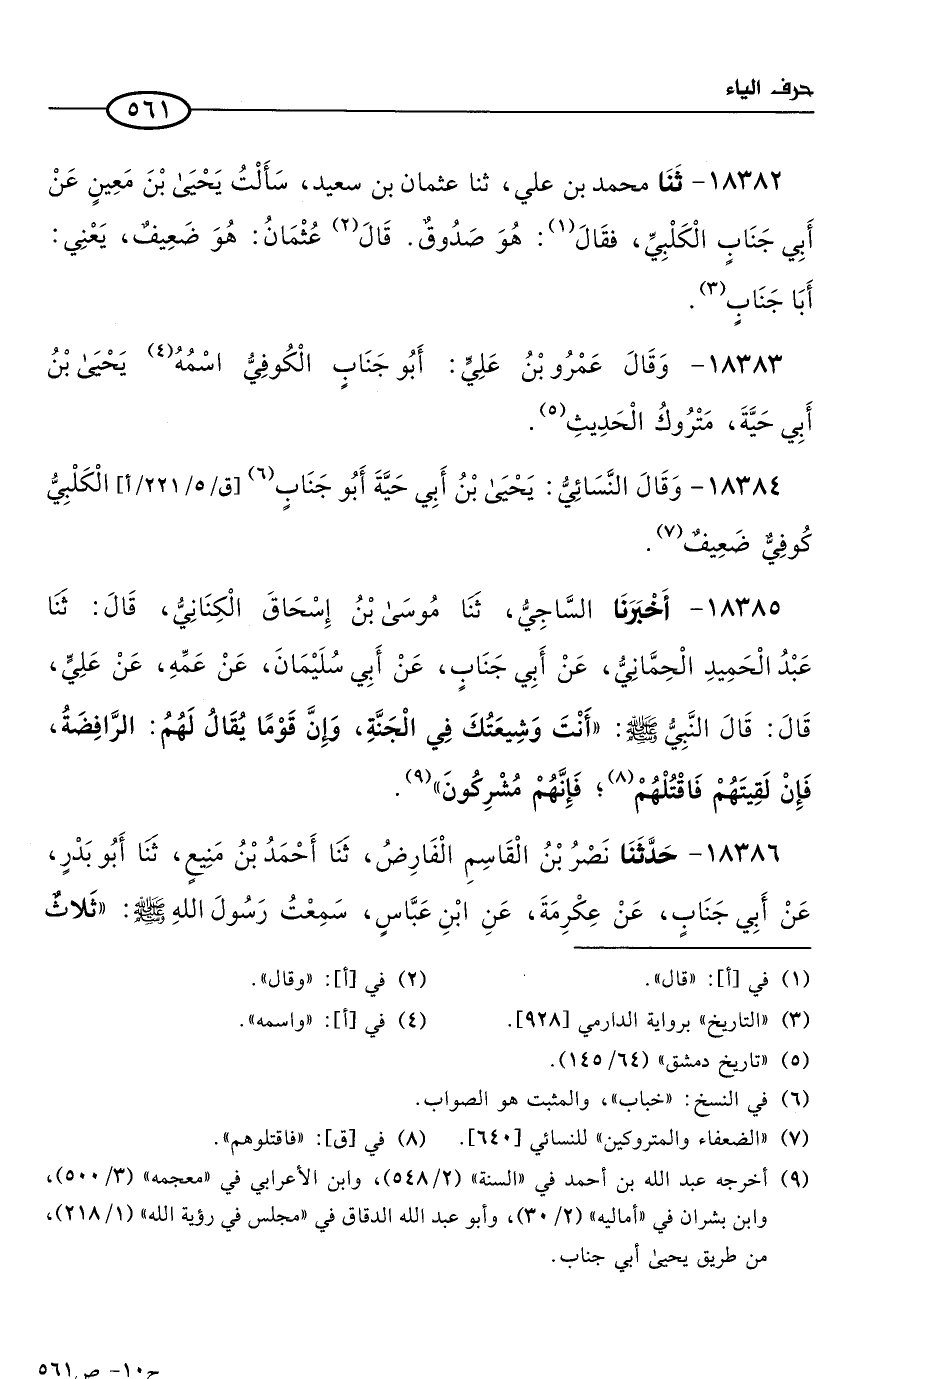 حرف الياء
٥٦١
١٨٣٨٢- ثَنَا محمد بن علي، ثنا عثمان بن سعيد، سَأَلْتُ يَحْيَىٰ بْنَ مَعِينٍ عَنْ
أَبِي جَنَابٍ الْكَلْبِيِّ، فقَالَ(١): هُوَ صَدُوقٌ. قَالَ(٢) عُثْمَانُ: هُوَ ضَعِيفٌ، يَعْنِي:
أَبَا جَنَابٍ(٣).
١٨٣٨٣- وَقَالَ عَمْرُو بْنُ عَلِيٍّ: أَبُو جَنَابٍ الْكُوفِيُّ اسْمُهُ(٤) يَحْيَىٰ بْنُ
أَبِي حَيَّةَ، مَتْرُوكُ الْحَدِيثِ(٥).
١٨٣٨٤- وَقَالَ النَّسَائِيُّ: يَحْيَىٰ بْنُ أَبِي حَيَّةَ أَبُو جَنَابٍ(٦) [ق/٥/٢٢١/أ] الْكَلْبِيُّ
كُوفِيٌّ ضَعِيفٌ(٧).
١٨٣٨٥- أَخْبَرَنَا السَّاجِيُّ، ثَنَا مُوسَىٰ بْنُ إِسْحَاقَ الْكِنَانِيُّ، قَالَ: ثَنَا
عَبْدُ الْحَمِيدِ الْحِمَّانِيُّ، عَنْ أَبِي جَنَابٍ، عَنْ أَبِي سُلَيْمَانَ، عَنْ عَمِّهِ، عَنْ عَلِيٍّ،
قَالَ: قَالَ النَّبِيُّ ﷺ: «أَنْتَ وَشِيعَتُكَ فِي الْجَنَّةِ، وَإِنَّ قَوْمًا يُقَالُ لَهُمُ: الرَّافِضَةُ،
فَإِنْ لَقِيتَهُمْ فَاقْتُلْهُمْ(٨)؛ فَإِنَّهُمْ مُشْرِكُونَ»(٩).
١٨٣٨٦- حَدَّثَنَا نَصْرُ بْنُ الْقَاسِمِ الْفَارِضُ، ثَنَا أَحْمَدُ بْنُ مَنِيعٍ، ثَنَا أَبُو بَدْرٍ،
عَنْ أَبِي جَنَابٍ، عَنْ عِكْرِمَةَ، عَنِ ابْنِ عَبَّاسٍ، سَمِعْتُ رَسُولَ اللهِ ﷺ: «ثَلَاثٌ
(١) في [أ]: «قال». (٢) في [أ]: «وقال».
(٣) «التاريخ» برواية الدارمي [٩٢٨]. (٤) في [أ]: «واسمه».
(٥) «تاريخ دمشق» (٦٤/ ١٤٥).
(٦) في النسخ: «خباب»، والمثبت هو الصواب.
(٧) «الضعفاء والمتروكين» للنسائي [٦٤٠]. (٨) في [ق]: «فاقتلوهم».
(٩) أخرجه عبد الله بن أحمد في «السنة» (٥٤٨/٢)، وابن الأعرابي في «معجمه» (٥٠٠/٣)،
وابن بشران في «أماليه» (٣٠/٢)، وأبو عبد الله الدقاق في «مجلس في رؤية الله» (٢١٨/١)،
من طريق يحيىٰ أبي جناب.
ج١٠- ص٥٦١